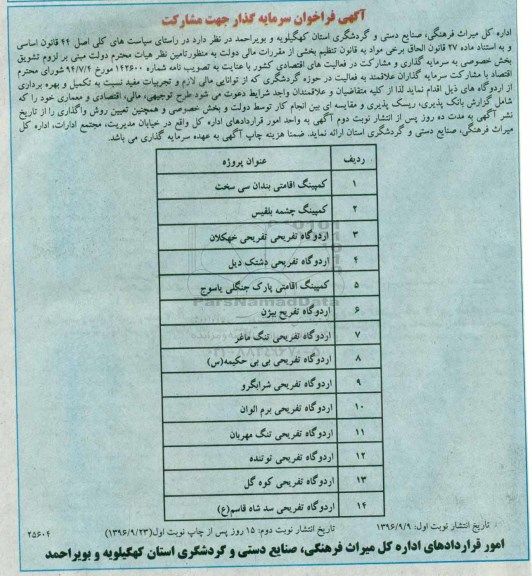 آگهی فراخوان سرمایه گذار جهت مشارکت
اداره کل میراث فرهنگی، صنایع دستی و گردشگری استان کهگیلویه و بویراحمد در نظر دارد در راستای سیاست های کلی اصل ۴۴ قانون اساسی
و به استناد ماده ۲۷ قانون الحاق برخی مواد به قانون تنظیم بخشی از مقررات مالی دولت به منظورتامین نظر هیات محترم دولت مبنی بر لزوم تشویق
بخش خصوصی به سرمایه گذاری و مشارکت در فعالیت های اقتصادی کشور با عنایت به تصویب نامه شماره ۱۴۲۶۰۰ مورخ ۹۴/۷/۱ شورای محترم
اقتصاد با مشارکت سرمایه گذاران علاقمند به فعالیت در حوزه گردشگری که از توانایی مالی لازم و تجربیات مفید نسبت به تکمیل و بهره برداری
از اردوگاه های ذیل اقدام نماید لذا از کلیه متقاضیان و علاقمندان واجد شرایط دعوت می شود طرح توجیهی، مالی، اقتصادی و معماری خود را که
شامل گزارش بانک پذیری، ریسک پذیری و مقایسه ای بین انجام کار توسط دولت و بخش خصوصی و همچنین تعیین روش واگذاری را از تاریخ
نشر آگهی به مدت ده روز پس از انتشار نوبت دوم آگهی به واحد امور قراردادهای اداره کل واقع در خیابان مدیریت، مجتمع ادارات، اداره کل
میراث فرهنگی، صنایع دستی و گردشگری استان ارائه نماید. ضمنا هزینه چاپ آگهی به عهده سرمایه گذاری می باشد.
ردیف عنوان پروژه
۱ کمپینگ اقامتی بندان سی سخت
۲ کمپینگ چشمه بلقیس
۳ اردوگاه تفریحی تفریحی خهکلان
۴ اردوگاه تفریحی دشتک دیل
۵ کمپینگ اقامتی پارک جنگلی یاسوج
۶ اردوگاه تفریح بیژن
۷ اردوگاه تفریحی تنگ ماغر
۸ اردوگاه تفریحی بی بی حکیمه(س)
۹ اردوگاه تفریحی شرابگرو
۱۰ اردوگاه تفریحی برم الوان
۱۱ اردوگاه تفریحی تنگ مهریان
۱۲ اردوگاه تفریحی توتنده
۱۳ اردوگاه تفریحی کوه گل
۱۴ اردوگاه تفریحی سد شاه قاسم(ع)
ParsNamadData
تاریخ انتشار نوبت اول: ۱۳۹۶/۹/۹ تاریخ انتشار نوبت دوم: ۱۵ روز پس از چاپ نوبت اول(۱۳۹۶/۹/۲۳) ۲۵۶۰۴
امور قراردادهای اداره کل میراث فرهنگی، صنایع دستی و گردشگری استان کهگیلویه و بویراحمد